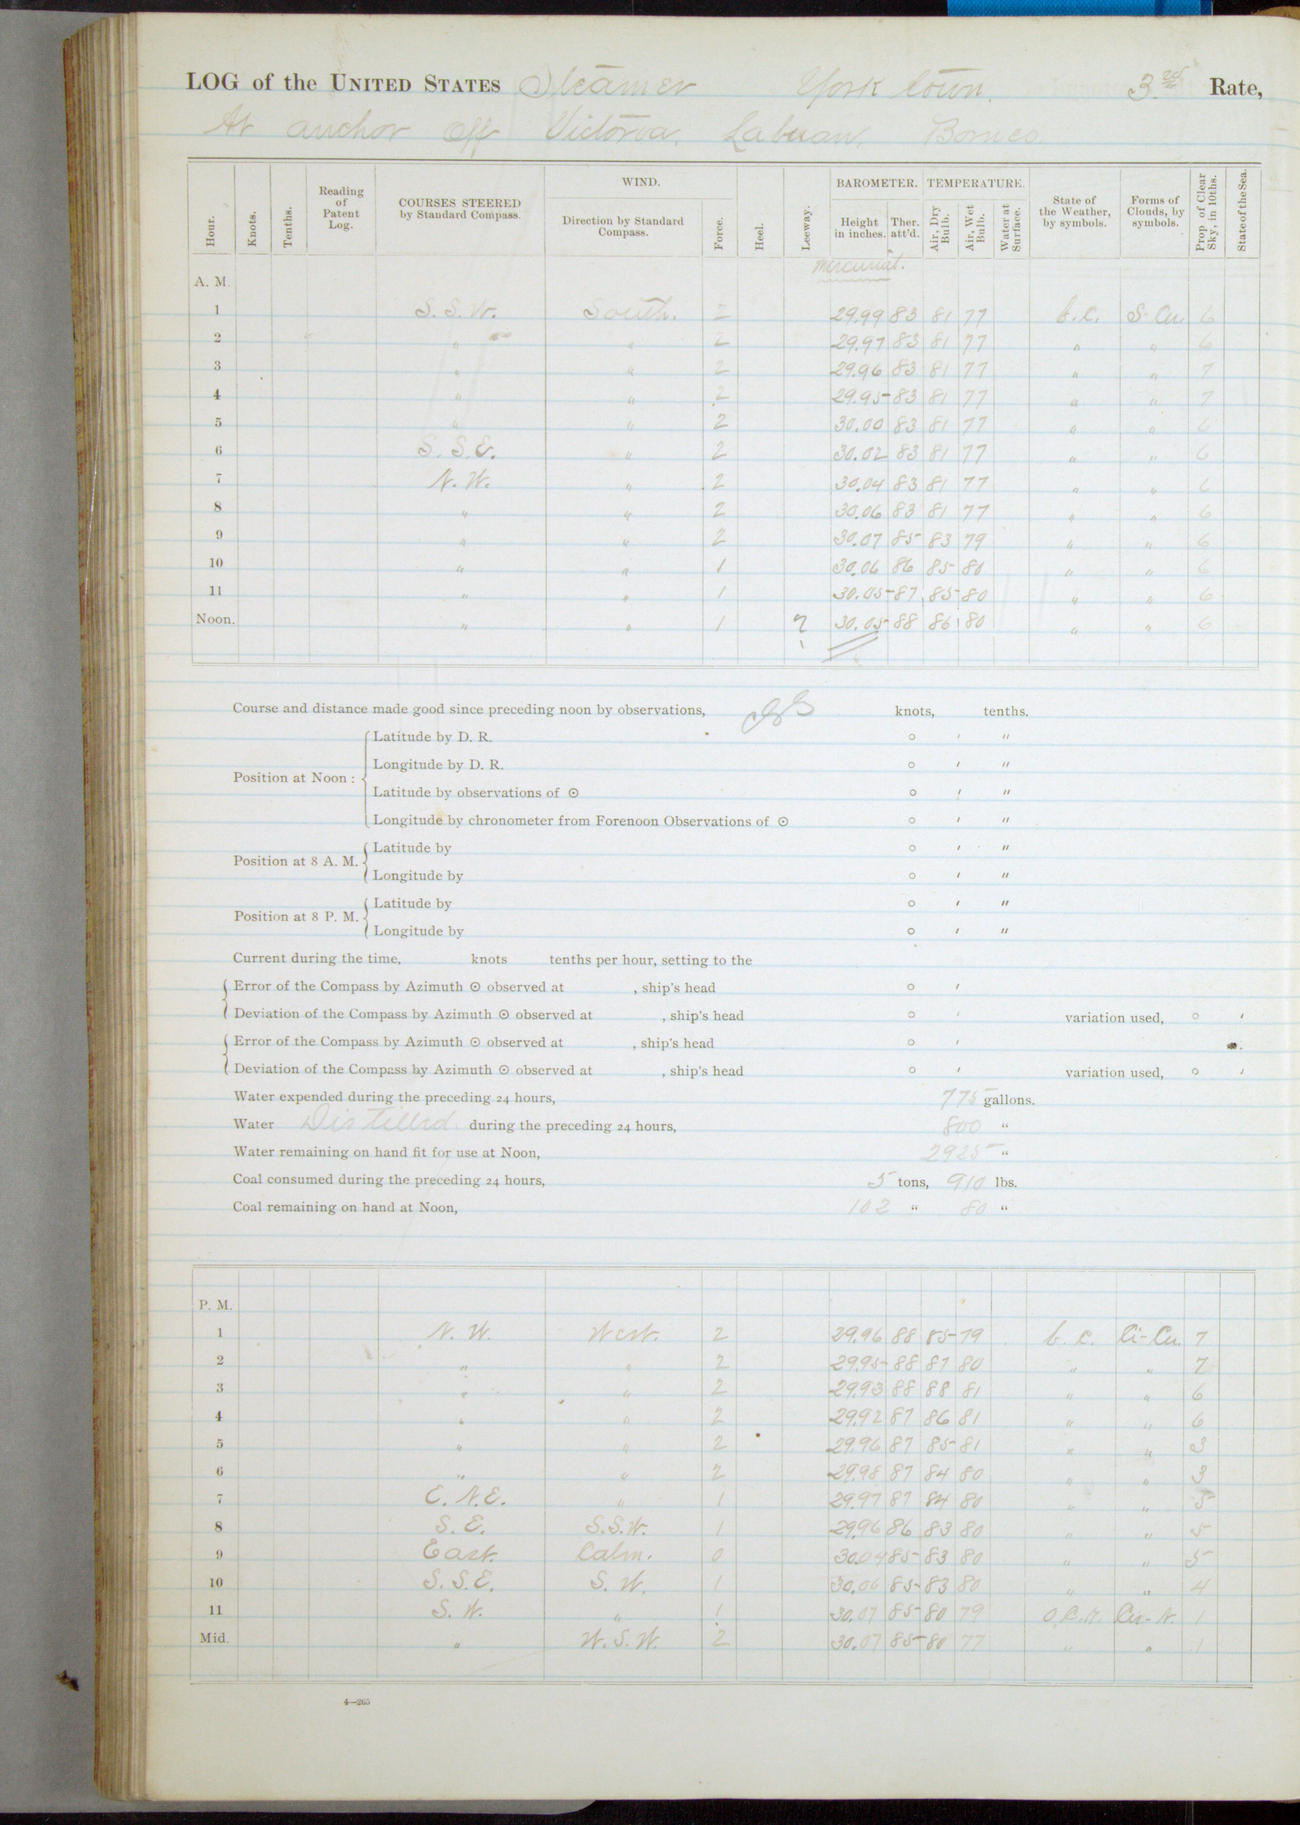 LOG of the UNITED STATES Steamer Yorktown. 3rd Rate,
At anchor off Victoria, Labuan, Borneo.
Hour. Knots. Tenths. Reading of Patent Log. COURSES STEERED by Standard Compass. WIND. Direction by Standard Compass. Force. Heel. Leeway. BAROMETER. Height in inches. Ther. att'd. TEMPERATURE. Air, Dry Bulb. Air, Wet Bulb. Water at Surface. State of the Weather, by symbols. Forms of Clouds, by symbols. Prop. of Clear Sky, in 10ths. State of the Sea.
mercurial.
A. M.
1 S. S. W. South. 2 29.99 83 81 77 b. c. S-Cu. 6
2 " " 2 29.97 83 81 77 " " 6
3 " " 2 29.96 83 81 77 " " 7
4 " " 2 29.95 83 81 77 " " 7
5 " " 2 30.00 83 81 77 " " 6
6 S. S. E. " 2 30.02 83 81 77 " " 6
7 N. W. " 2 30.04 83 81 77 " " 6
8 " " 2 30.06 83 81 77 " " 6
9 " " 2 30.07 85 83 79 " " 6
10 " " 1 30.06 86 85 80 " " 6
11 " " 1 30.05 87 85 80 " " 6
Noon. " " 1 30.05 88 86 80 " " 6
Course and distance made good since preceding noon by observations, knots, tenths.
Position at Noon :
Latitude by D. R. ° ′ ″
Longitude by D. R. ° ′ ″
Latitude by observations of ⊙ ° ′ ″
Longitude by chronometer from Forenoon Observations of ⊙ ° ′ ″
Position at 8 A. M.
Latitude by ° ′ ″
Longitude by ° ′ ″
Position at 8 P. M.
Latitude by ° ′ ″
Longitude by ° ′ ″
Current during the time, knots tenths per hour, setting to the
Error of the Compass by Azimuth ⊙ observed at , ship's head ° ′
Deviation of the Compass by Azimuth ⊙ observed at , ship's head ° ′ variation used, ° ′
Error of the Compass by Azimuth ⊙ observed at , ship's head ° ′
Deviation of the Compass by Azimuth ⊙ observed at , ship's head ° ′ variation used, ° ′
Water expended during the preceding 24 hours, 775 gallons.
Water Distilled during the preceding 24 hours, 800 "
Water remaining on hand fit for use at Noon, 2925 "
Coal consumed during the preceding 24 hours, 5 tons, 910 lbs.
Coal remaining on hand at Noon, 102 " 80 "
P. M.
1 N. W. West. 2 29.96 88 85 79 b. c. Ci-Cu. 7
2 " " 2 29.95 88 87 80 " " 7
3 " " 2 29.93 88 88 81 " " 6
4 " " 2 29.92 87 86 81 " " 6
5 " " 2 29.96 87 85 81 " " 3
6 " " 2 29.98 87 84 80 " " 3
7 E. N. E. " 1 29.97 87 84 80 " " 5
8 S. E. S.S.W. 1 29.96 86 83 80 " " 5
9 East. Calm. 0 30.04 85 83 80 " " 5
10 S. S. E. S. W. 1 30.06 85 83 80 " " 4
11 S. W. " 1 30.07 85 80 79 Cu-N. 1
Mid. " W. S. W. 2 30.07 85 80 77 " " 1
4—265